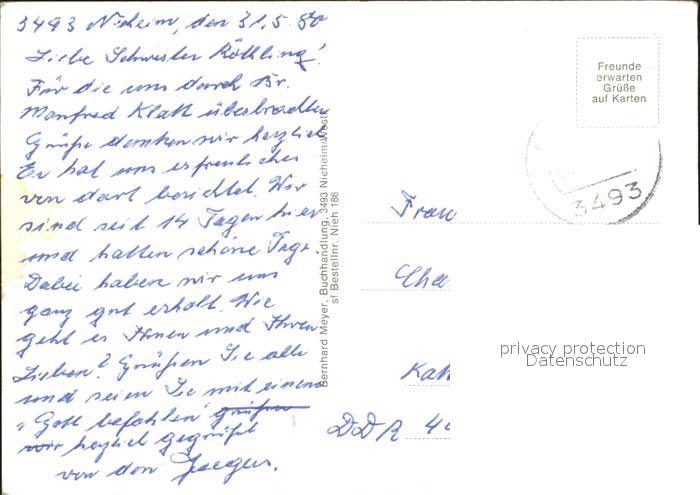 3493 Nieheim, den 31.5.80
Liebe Schwester Röthling!
Für die uns durch Br.
Manfred Klatt überbrachten
Grüße danken wir herzlich.
Er hat uns erfreuliches
von dort berichtet. Wir
sind seit 14 Tagen hier
und hatten schöne Tage.
Dabei haben wir uns
ganz gut erholt. Wie
geht es Ihnen und Ihren
Lieben? Grüßen Sie alle
und seien Sie mit einem
"Gott befohlen"
herzlich gegrüßt
von den Jaegers.
Bernhard Meyer, Buchhandlung, 3493 Nieheim/Westf.
sf Bestellnr. Nieh 186
Freunde
erwarten
Grüße
auf Karten
3493
Frau
Cha
Kat
DDR 4
privacy protection
Datenschutz